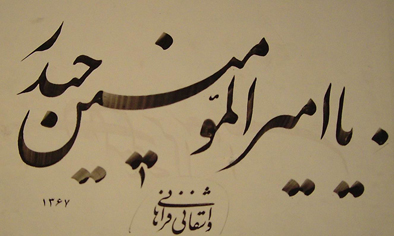 یا امیر المؤمنین حیدر
واشقانی فراهانی
۱۳۶۷